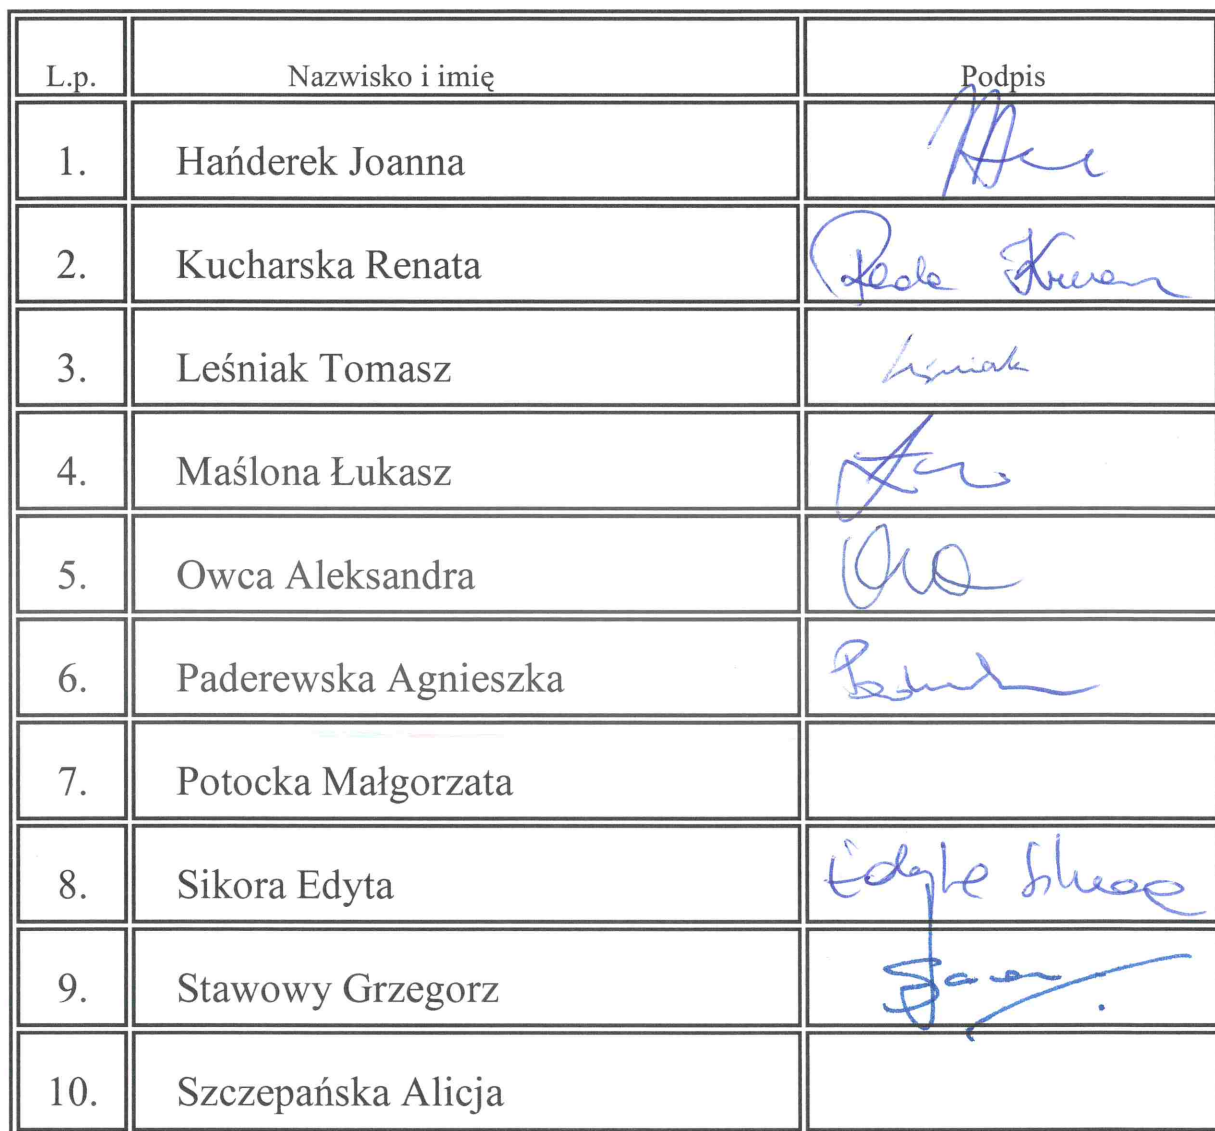 L.p. Nazwisko i imię Podpis
1. Hańderek Joanna
2. Kucharska Renata
3. Leśniak Tomasz Leśniak
4. Maślona Łukasz
5. Owca Aleksandra
6. Paderewska Agnieszka
7. Potocka Małgorzata
8. Sikora Edyta Edyta Sikora
9. Stawowy Grzegorz
10. Szczepańska Alicja